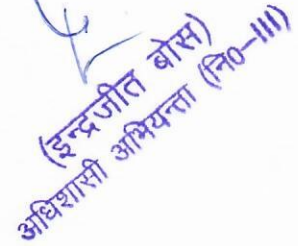 (इन्द्रजीत बोस)
अधिशासी अभियन्ता (नि०-III)